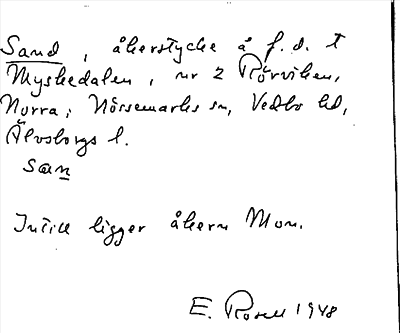 Sand, åkerstycke å f.d. t
Myskedalen, nr 2 Rörviken,
Norra; Nössemarks sn, Vedbo hd,
Älvsborgs l.
san
Intill ligger åkern Mon.
E. Rosell 1948